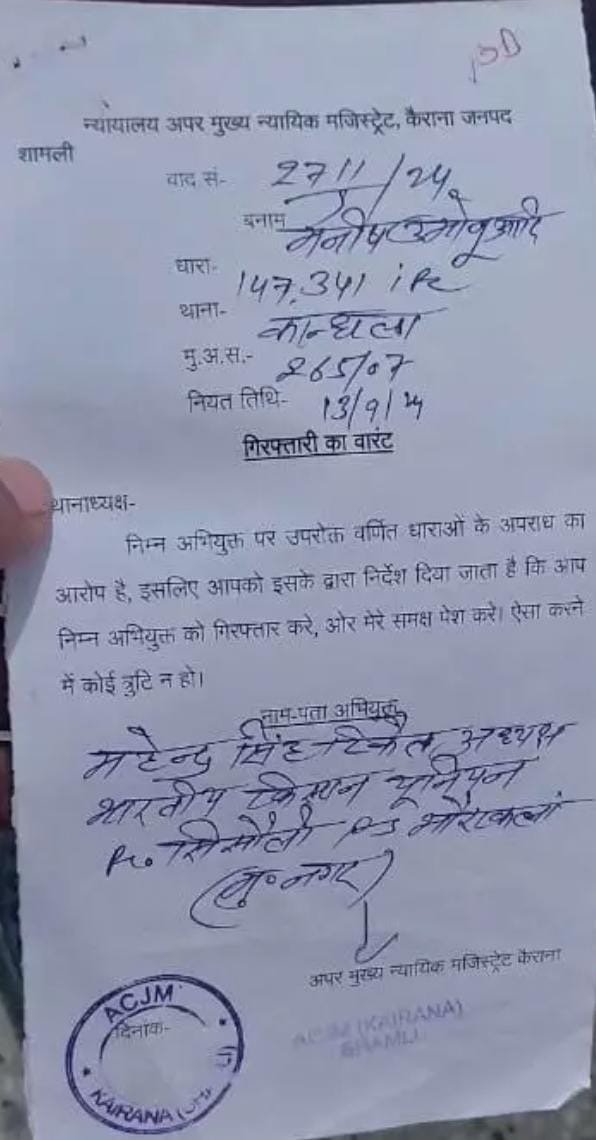 न्यायालय अपर मुख्य न्यायिक मजिस्ट्रेट, कैराना जनपद
शामली
वाद सं- 2711/24
बनाम
मनीष उ मोनू आदि
धारा-
147,341 iPc
थाना-
कान्धला
मु.अ.स.- 265/07
नियत तिथि- 13/9/24
गिरफ्तारी का वारंट
थानाध्यक्ष-
निम्न अभियुक्त पर उपरोक्त वर्णित धाराओं के अपराध का
आरोप है, इसलिए आपको इसके द्वारा निर्देश दिया जाता है कि आप
निम्न अभियुक्त को गिरफ्तार करे, ओर मेरे समक्ष पेश करे। ऐसा करने
में कोई त्रुटि न हो।
नाम-पता अभियुक्त
महेन्द्र सिंह टिकैत अध्यक्ष
भारतीय किसान यूनियन
R/o सिसौली PS भौराकलां
(मु॰नगर)
अपर मुख्य न्यायिक मजिस्ट्रेट कैराना
ACJM (KAIRANA)
SHAMLI
ACJM
दिनाक-
KAIRANA